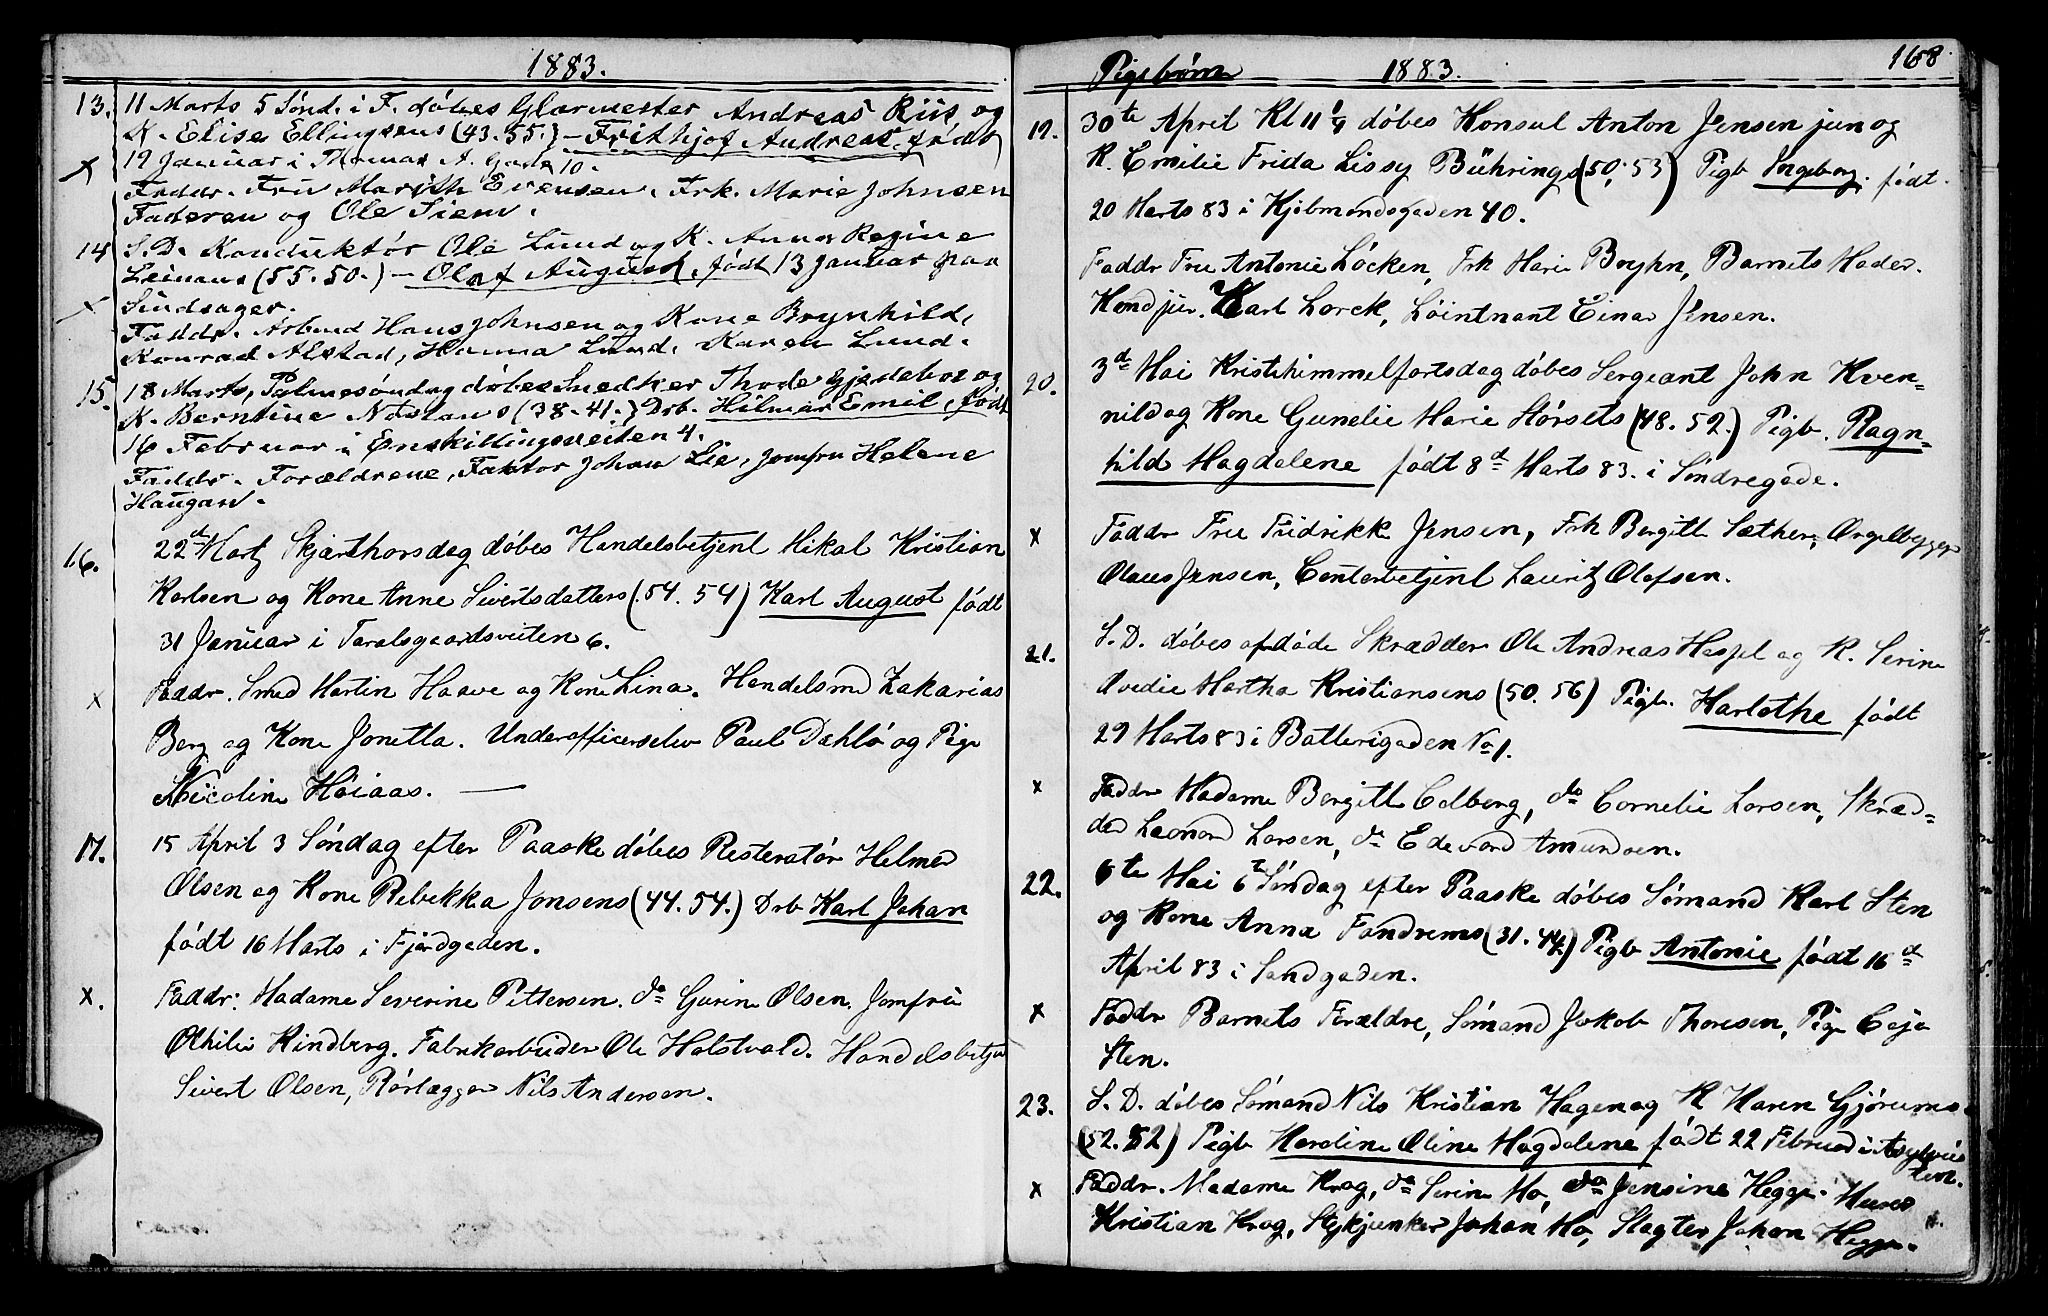 1883.
13. 11 Marts 5 Sønd. i F. døbes Glarmester Andreas Riis og
K. Elise Ellingsens (43.55.) - Frithjof Andreas, født
19 Januar i Thomas A. Gade 10.
Faddr. Fru Marith Evensen, Frk. Marie Johnsen
Faderen og Ole Siem.
14 S.D. Konduktør Ole Lund og K. Anna Regine
(55.50.) - Olaf August, født 13 Januar paa
Faddr. Hans Johnsen og Kone Brynhild,
Konrad Alstad, Hanna Lund, Karen Lund.
15. 18 Marts, Palmesøndag døbes Snedker Thode Gjedebo og
K. Berntine (38-41.) Drb. Hilmar Emil, født
16 Februar i Enskillingsveiten 4.
Faddr. Forældrene, Faktor Johan Lie, Jomfru Helene
Haugan.
16. 22d Marts Skjærthorsdag døbes Handelsbetjent Mikal Kristian
Karlsen og Kone Anne Sivertsdatters (.54.54) Karl August født
31 Januar i Taralsgaardsveiten 6.
x Faddr. Smed Martin Haave og Kone Lina. Handelsmd Zakarias
Berg og Kone Jonetta. Underofficerselev Paul Dahlø og Pige
Nicoline Høiaas. —
17. 15 April 3 Søndag efter Paaske døbes Restoratør Helmer
Olsen og Kone Rebekka Jonsens (44.54.) Drb Karl Johan
født 16 Marts i Fjordgaden.
x. Faddr: Madame Severine Pettersen. do Gurine Olsen. Jomfru
Othilie Rindberg. Fabrikarbeider Ole Holstvold. Handelsbetjen
Sivert Olsen, Rørlægger Nils Andersen.
Pigebørn 1883. 168
19. 30te April Kl 11 1/4 døbes Konsul Anton Jensen jun og
K. Emilie Frida Lissy Bührings (50.53) Pigb Ingeborg. født
20 Marts 83 i Kjøbmandsgaden 40.
Faddr Fru Antonie Løcken, Frk Marie Bryhn, Barnets Moder.
Karl Lorck, Løintnant Einar Jensen.
20. 3d Mai Kristihimmelfartsdag døbes Sergeant John Kven-
nild og Kone Gunelie Marie Hørsets (48.52.) Pigb. Ragn-
hild Magdelene født 8d Marts 83. i Søndregade.
x Faddr Fru Fridrikke Jensen, Frk Bergitte Sæther, Orgelbygger
Olaus Jensen, Contorbetjent Lauritz Olafsen.
21. S.D. døbes afdøde Skrædder Ole Andreas Haspel og K. Serine
Ovedie Martha Kristiansens (50.56) Pigb. Karlothe født
29 Marts 83 i Batterigaden No 1.
x Faddr Madame Bergitte Edberg, do Cornelie Larsen, Skræd-
der Leonard Larsen, do Edevard Amundsen.
22. 6te Mai 6te Søndag efter Paaske døbes Sømand Karl Sten
og Kone Anna Fandrems (31.44.) Pigb Antonie født 16d
April 83 i Sandgaden.
x Faddr Barnets Forældre, Sømand Jakob Thoresen, Pige Caja
Sten.
23. S.D. døbes Sømand Nils Kristian Hagen og K Karen Gjørums
(52.52) Pigb Karoline Oline Magdalene født 22 Februar i Asylveiten.
x Faddr. Madame Krog, do Serine Mo, do Jensine Hegge. Murer
Kristian Krog, Stykjunker Johan Mo, Slagter Johan Hegge.